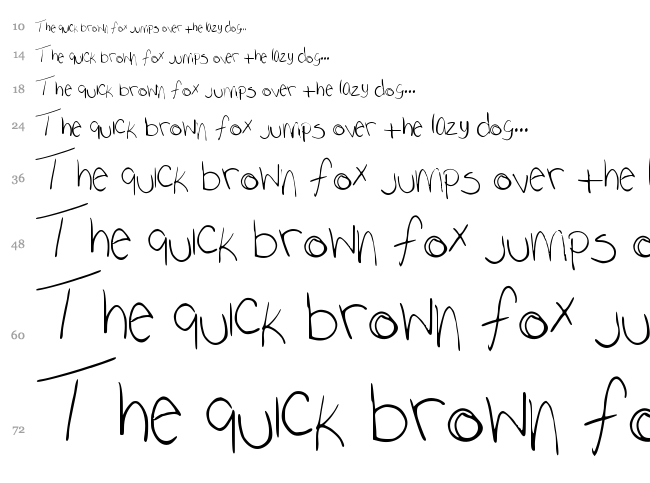 10 The quick brown fox jumps over the lazy dog...
14 The quick brown fox jumps over the lazy dog...
18 The quick brown fox jumps over the lazy dog...
24 The quick brown fox jumps over the lazy dog...
36 The quick brown fox jumps over the l
48 The quick brown fox jumps o
60 The quick brown fox ju
72 The quick brown fo